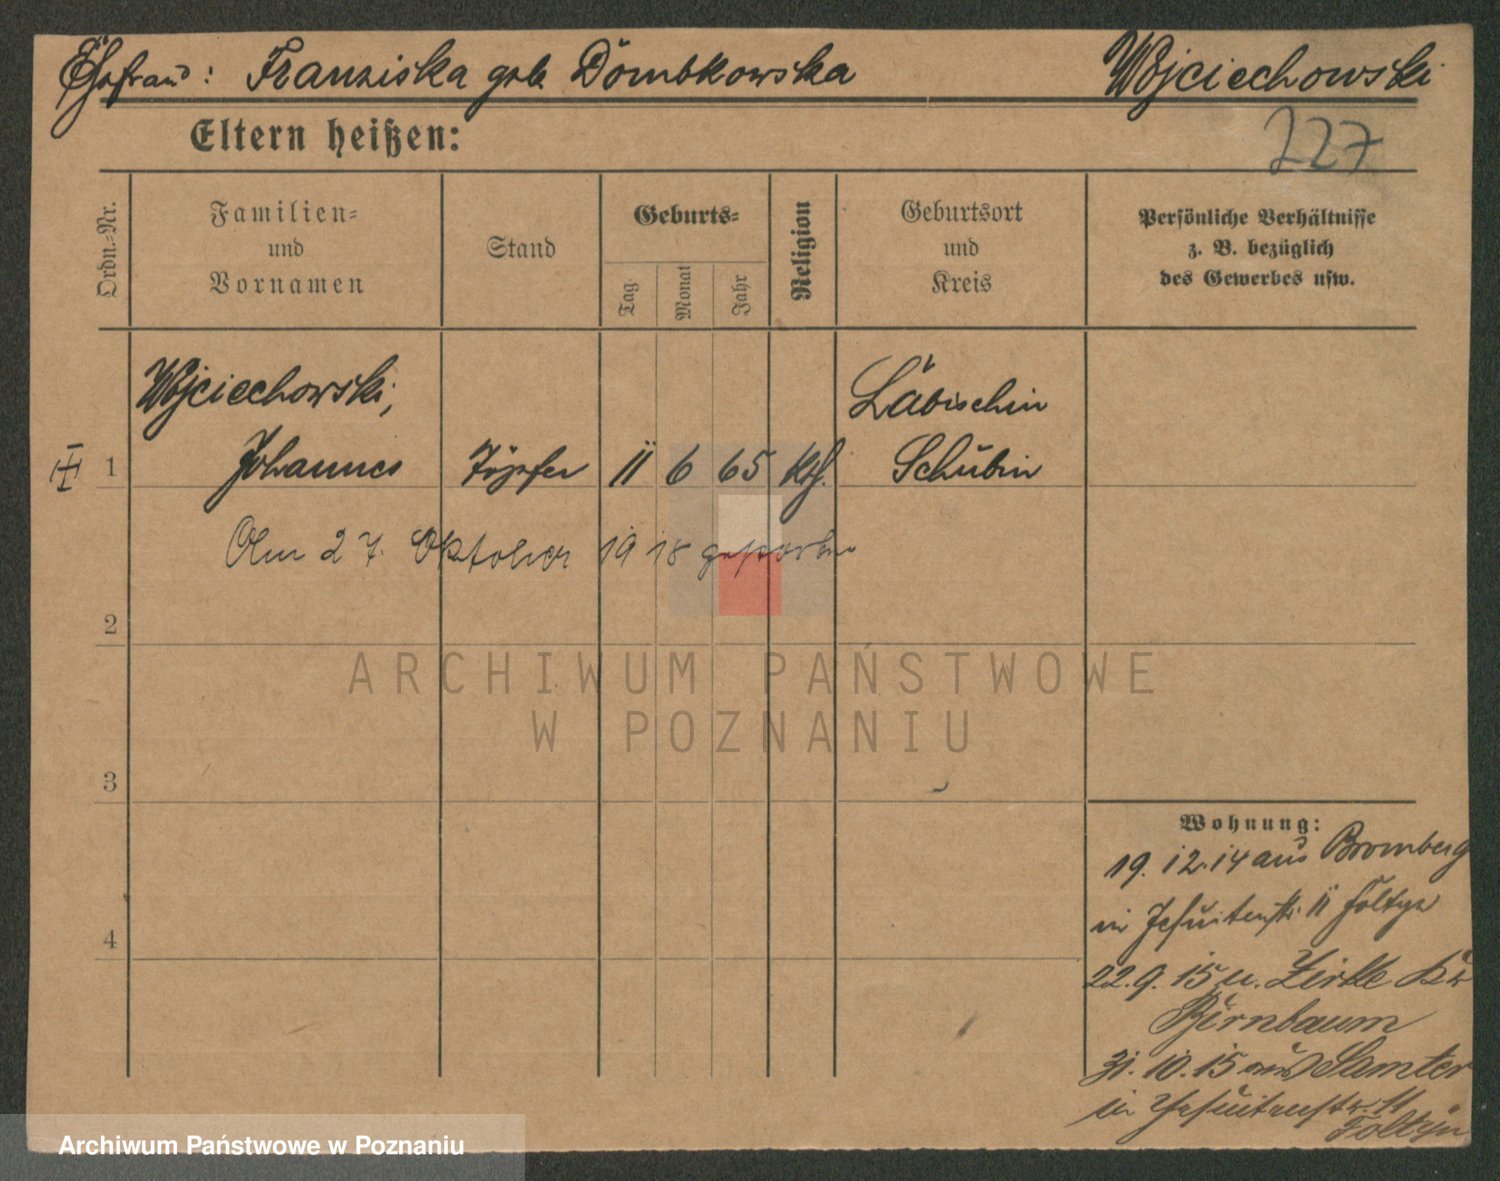 Ehefrau: Franziska geb Dombkowska Wojciechowski
227
Eltern heißen:
Ordn.-Nr.
Familien-
und
Vornamen
Stand
Geburts-
Tag
Monat
Jahr
Religion
Geburtsort
und
Kreis
Persönliche Verhältnisse
z. B. bezüglich
des Gewerbes usw.
Wojciechowski,
Labischin
1 Johannes Töpfer 11 6 65 kth. Schubin
Am 27. Oktober 1918 gestorben
2
3
4
Wohnung:
19.12.14 aus Bromberg
in Jesuitenstr. 11
22.9.15 n. Zirke Kr
Birnbaum
31.10.15 aus Samter
in Jesuitenstr. 11
ARCHIWUM PAŃSTWOWE
W POZNANIU
Archiwum Państwowe w Poznaniu